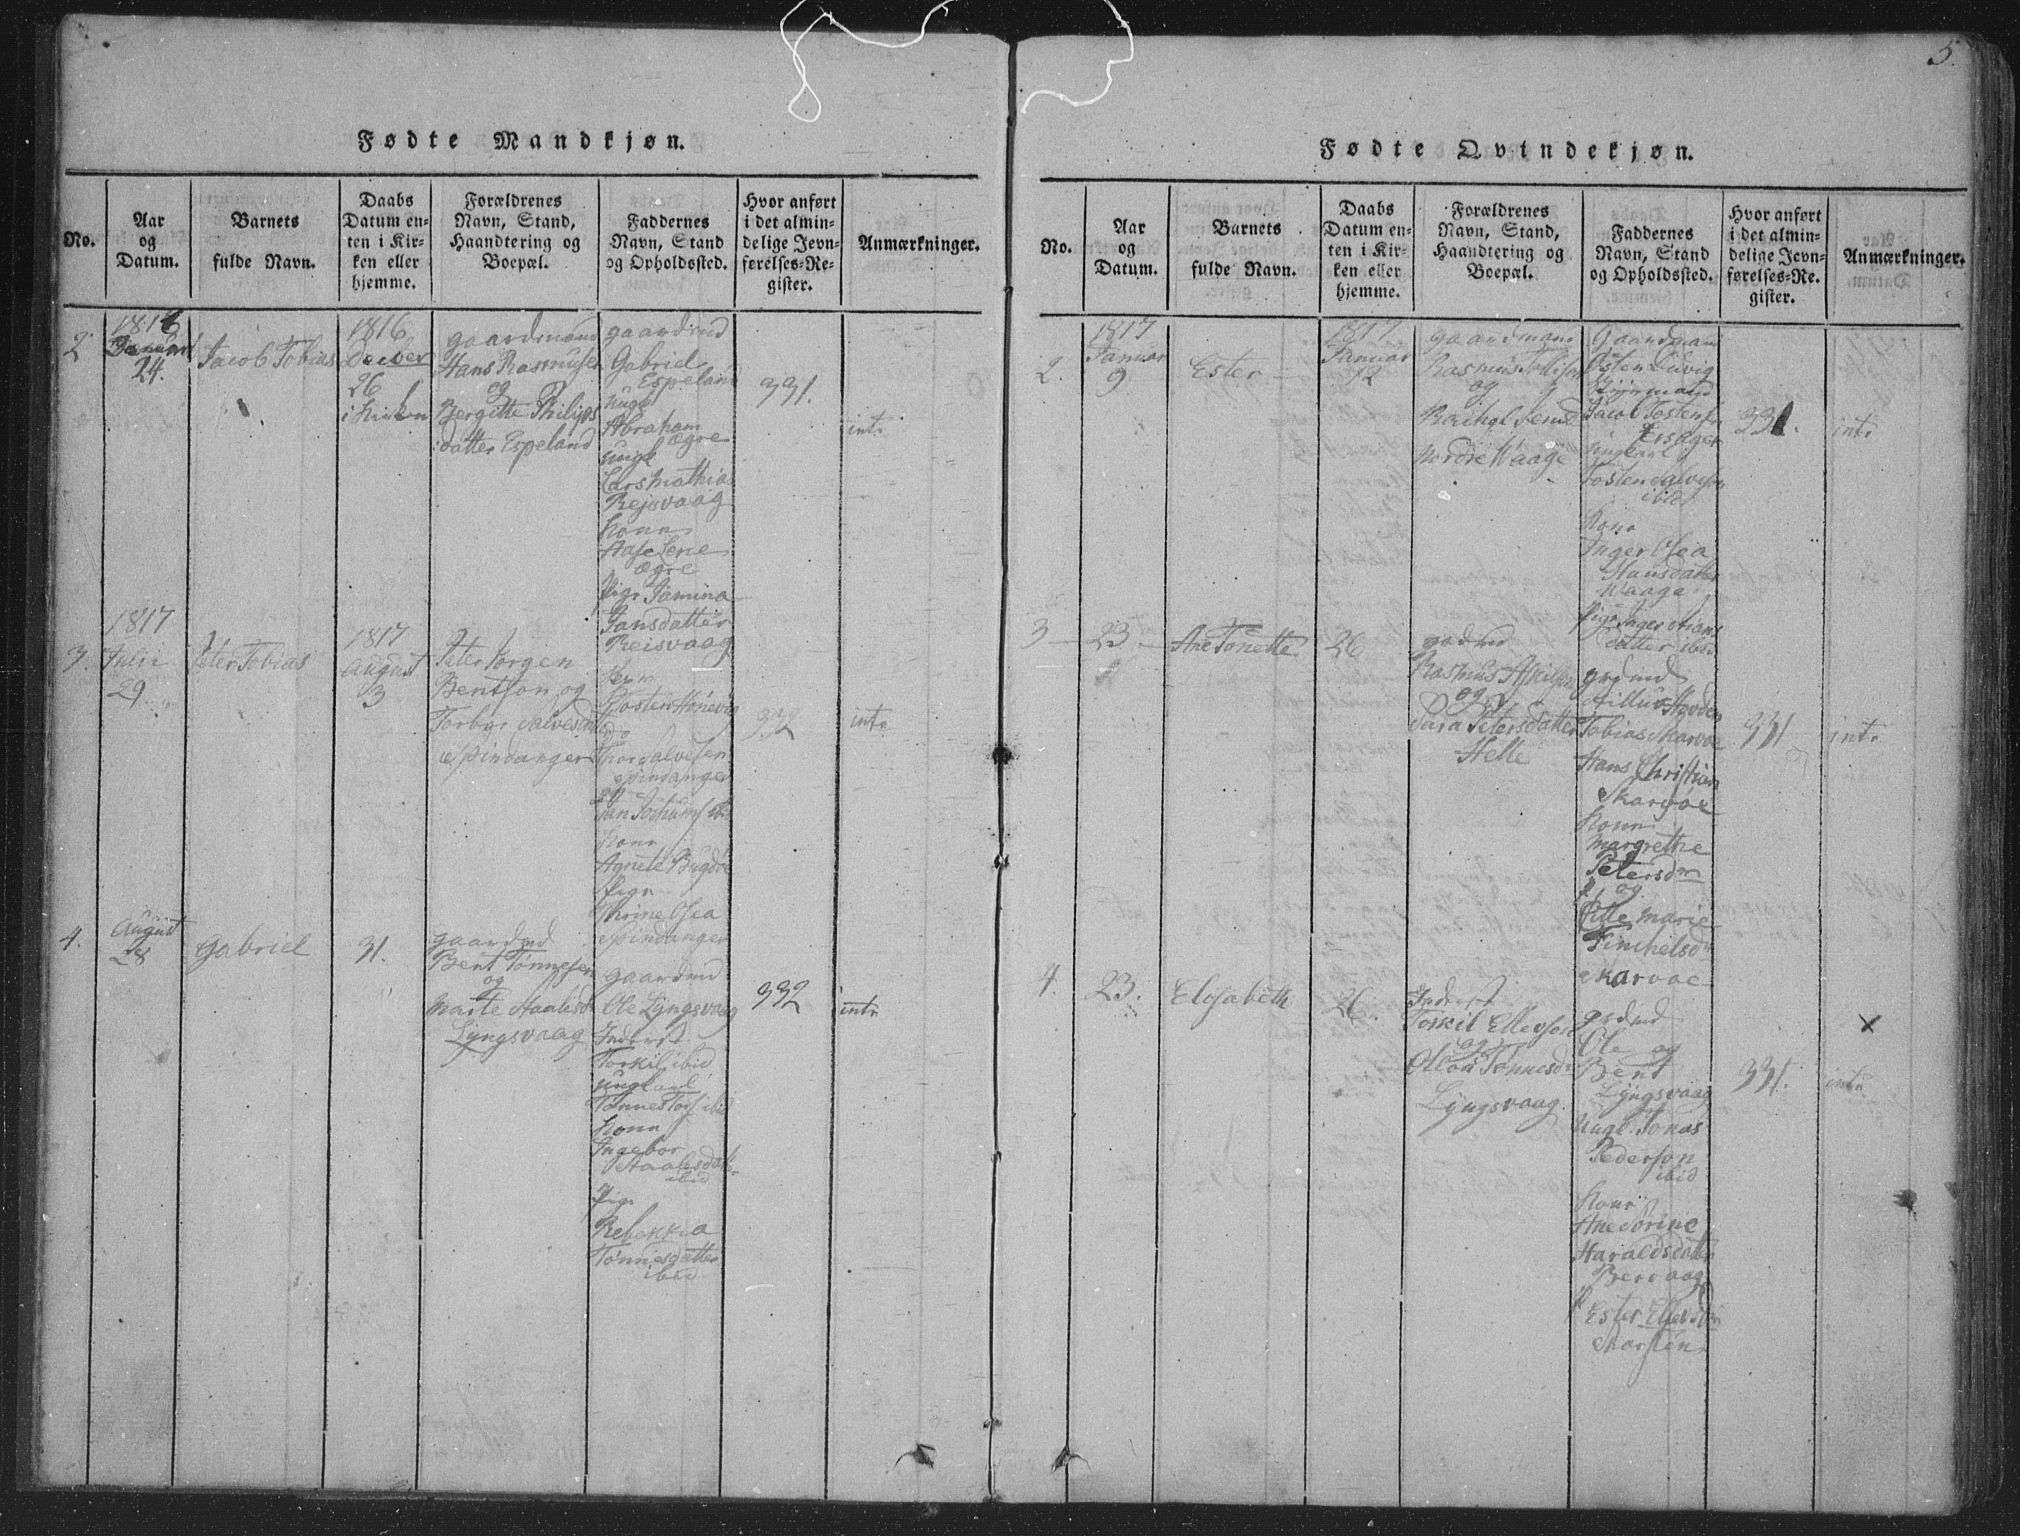 5.
Fødte Mandkjøn.
No.
Aar
og
Datum.
Barnets
fulde Navn.
Daabs
Datum en-
ten i Kir-
ken eller
hjemme.
Forældrenes
Navn, Stand,
Haandtering og
Boepæl.
Faddernes
Navn, Stand
og Opholdssted.
Hvor anført
i det almin-
delige Jevn-
førelses-Re-
gister.
Anmærkninger.
2
1816
24.
Jacob Tobias
1816
Decber
26
i Kirken
gaardmand
Hans Rasmusen
og
Bergitte Philips
datter Espeland
gaardmd
Gabriel
Espeland
ungk
Abraham
Ægre
ungk
Lars Mathia
Rejsvaag
Konn
Aase Lene
Ægre
Pige Jamina
Jansdatter
Reisvaag
331.
intr
3.
1817
Julii
29
Peter Tobias
1817
August
3
Peter Jorgen
Bentson og
Torbor Salvesdtt
Spindanger
Tosten Hønevig
do
Thor Salvesen
Spindanger
Jan Jochums
Konn
Agnete Bugdøe
Pign
Thrine Osea
Spindanger
332
intr
4.
August
28
Gabriel
31.
gaardmd
Bent Tønnesen
og
Marte Aaalesd
Lyngsvaag
gaardmd
Ole Lyngsvaag
Inderst
Torkil ibid
ungkarl
Tønnes Tors ibid
Konn
Ingebor
Aaalesdatter
ibid
Pig.
Rebekka
Tønnesdatter
ibid
332
intr
Fødte Qvindekjøn.
No.
Aar
og
Datum.
Barnets
fulde Navn.
Daabs
Datum en-
ten i Kir-
ken eller
hjemme.
Forældrenes
Navn, Stand,
Haandtering og
Boepæl.
Faddernes
Navn, Stand
og Opholdssted.
Hvor anført
i det almin-
delige Jevn-
førelses-Re-
gister.
Anmærkninger.
2.
1817
Januar
9
Ester
1817
Januar
12
gaardmand
Rasmus Tollisen
og
Rachel
Nordre Waage
Gaardmand
Osten Luvig
Jacob Tostens
Ersager
ungkarl
Tosten Salvesen
ibid
Kone
Inger Osea
Hansdatter
Waage
Pige Inger Arians
datter ibid
331.
intr
3
23
Ane Tonette
26
gardmd
Rasmus Askilsen
og
Sara Petersdatter
Helle
grdmd
Tobias Skarvøe
Hans Christian
Skarvøe
Konn
Margrethe
Petersdr
og
Sille Marie
Timhelsdr
Skarvøe
331
intr
4.
23.
Elisabeth
26.
Inderst
Torkil Ellevsen
og
Oloa Tønnesdr
Lyngsvaag
grdmd
Ole og
Bent
Lyngsvaag
Ungk. Jonas
Pederson
ibid
Kone
Ane Sørine
Haraldsdatter
Bervaag
P Ester Ellevsdtr
331.
intr